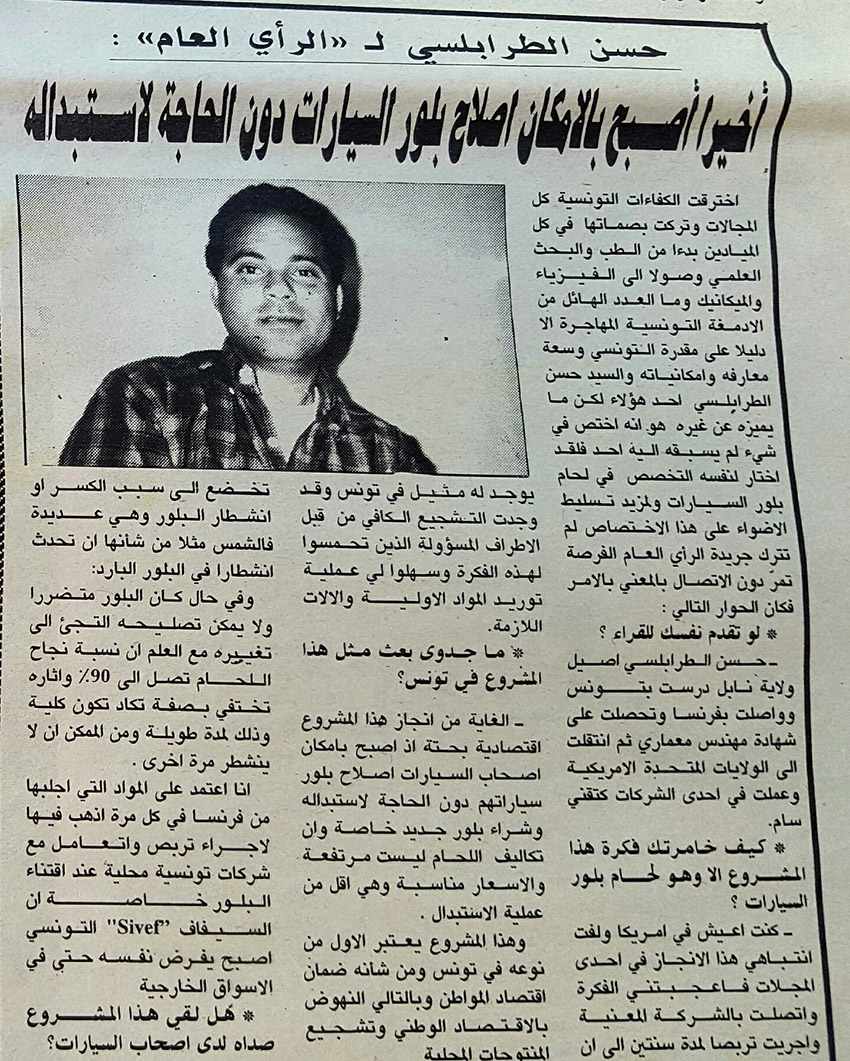 حسن الطرابلسي لـ «الرأي العام» :
أخيرا أصبح بالامكان اصلاح بلور السيارات دون الحاجة لاستبداله
اخترقت الكفاءات التونسية كل
المجالات وتركت بصماتها في كل
الميادين بدءا من الطب والبحث
العلمي وصولا الى الفيزياء
والميكانيك وما العدد الهائل من
الادمغة التونسية المهاجرة الا
دليلا على مقدرة التونسي وسعة
معارفه وامكانياته والسيد حسن
الطرابلسي احد هؤلاء لكن ما
يميزه عن غيره هو انه اختص في
شيء لم يسبقه اليه احد فلقد
اختار لنفسه التخصص في لحام
بلور السيارات ولمزيد تسليط
الاضواء على هذا الاختصاص لم
تترك جريدة الرأي العام الفرصة
تمرّ دون الاتصال بالمعني بالامر
فكان الحوار التالي :
* لو تقدم نفسك للقراء ؟
ـ حسن الطرابلسي اصيل
ولاية نابل درست بتونس
وواصلت بفرنسا وتحصلت على
شهادة مهندس معماري ثم انتقلت
الى الولايات المتحدة الامريكية
وعملت في احدى الشركات كتقني
سام.
* كيف خامرتك فكرة هذا
المشروع الا وهو لحام بلور
السيارات ؟
ـ كنت اعيش في امريكا ولفت
انتباهي هذا الانجاز في احدى
المجلات فاعجبتني الفكرة
واتصلت بالشركة المعنية
واجريت تربصا لمدة سنتين الى ان
يوجد له مثيل في تونس وقد
وجدت التشجيع الكافي من قبل
الاطراف المسؤولة الذين تحمسوا
لهذه الفكرة وسهلوا لي عملية
توريد المواد الاولية والالات
اللازمة.
* ما جدوى بعث مثل هذا
المشروع في تونس؟
ـ الغاية من انجاز هذا المشروع
اقتصادية بحتة اذ اصبح بامكان
اصحاب السيارات اصلاح بلور
سياراتهم دون الحاجة لاستبداله
وشراء بلور جديد خاصة وان
تكاليف اللحام ليست مرتفعة
والاسعار مناسبة وهي اقل من
عملية الاستبدال .
وهذا المشروع يعتبر الاول من
نوعه في تونس ومن شانه ضمان
اقتصاد المواطن وبالتالي النهوض
بالاقتصاد الوطني وتشجيع
المنتوجات المحلية
تخضع الى سبب الكسر او
انشطار البلور وهي عديدة
فالشمس مثلا من شأنها ان تحدث
انشطارا في البلور البارد:
وفي حال كان البلور متضررا
ولا يمكن تصليحه التجئ الى
تغييره مع العلم ان نسبة نجاح
اللحام تصل الى 90٪ واثاره
تختفي بصفة تكاد تكون كلية
وذلك لمدة طويلة ومن الممكن ان لا
ينشطر مرة اخرى .
انا اعتمد على المواد التي اجلبها
من فرنسا في كل مرة اذهب فيها
لاجراء تربص واتعامل مع
شركات تونسية محلية عند اقتناء
البلور خاصة ان
السيفاف "Sivef" التونسي
اصبح يفرض نفسه حتى في
الاسواق الخارجية
* هل لقي هذا المشروع
صداه لدى اصحاب السيارات؟